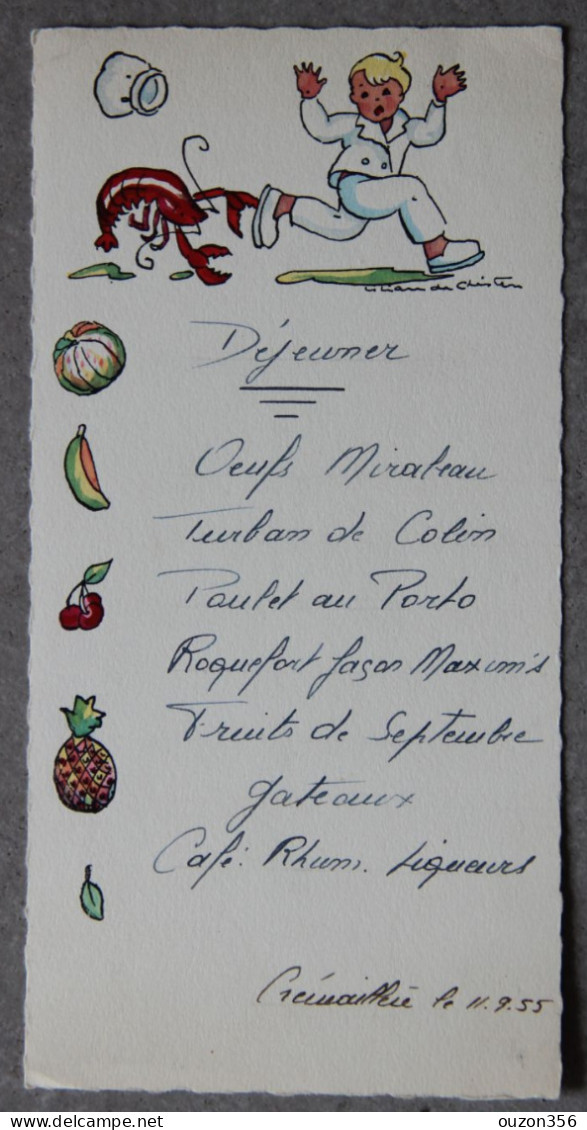 Déjeuner
Oeufs Mirabeau
Turban de Colin
Poulet au Porto
Roquefort façon Maxim's
Fruits de Septembre
gateaux
Café. Rhum. Liqueurs
Crémaillère le 11.9.55
www.delcampe.net
ouzon356